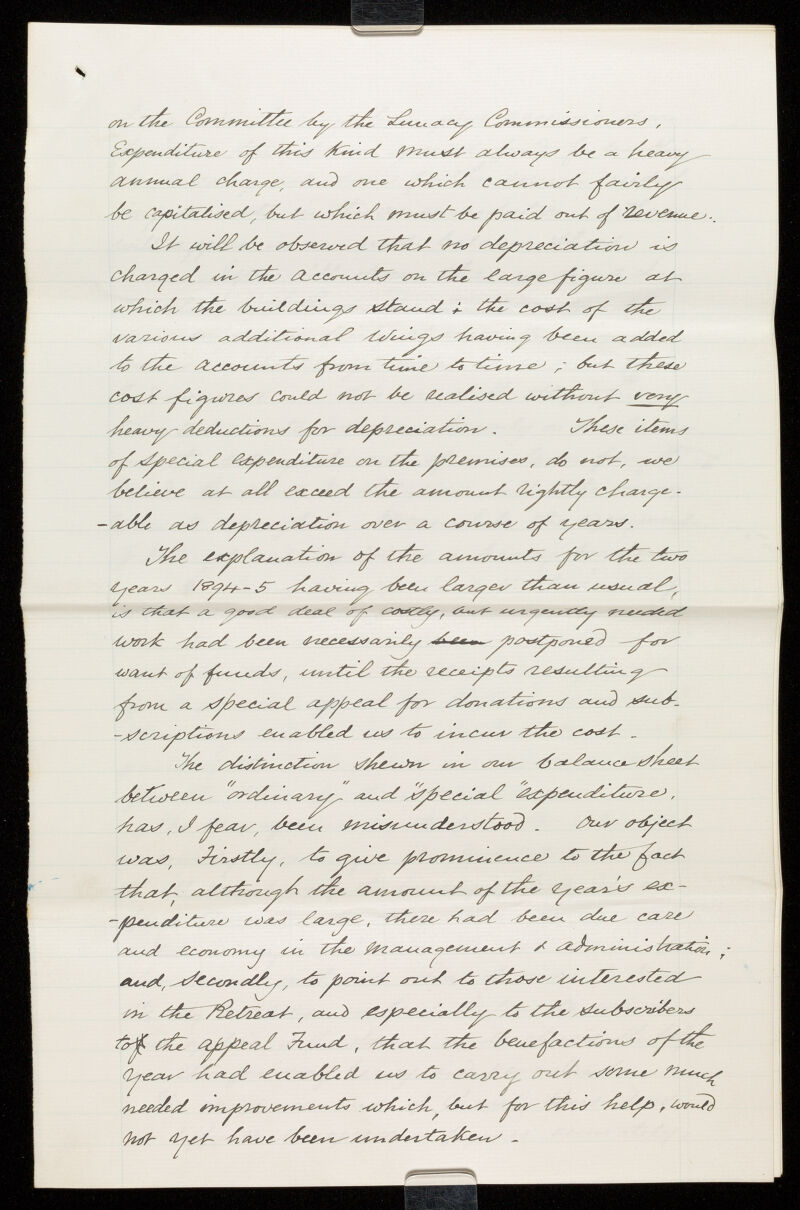 on the Committee by the Lunacy Commissioners.
Expenditure of this kind must always be a heavy
annual charge, and one which cannot fairly
be capitalised, but which must be paid out of revenue.
It will be observed that no depreciation is
charged in the Accounts on the large figure at
which the buildings stand; the cost of the
various additional wings having been added
to the accounts from time to time; but these
cost figures could not be realised without very
heavy deductions for depreciation. These items
of special expenditure on the premises, do not, we
believe at all exceed the amount rightly charge-
-able as depreciation over a course of years.
The explanation of the amounts for the two
years 1894-5 having been larger than usual,
is that a good deal of costly, but urgently needed
work had been necessarily been postponed for
want of funds, until the receipts resulting
from a special appeal for donations and sub-
-scriptions enabled us to incur the cost.
The distinction shewn in our balance sheet
between "ordinary" and "special" expenditure,
has, I fear, been misunderstood. Our object
was, Firstly, to give prominence to the fact
that, although the amount of the year's ex-
-penditure was large, there had been due care
and economy in the management & administration;
and, secondly, to point out to those interested
in the Retreat, and especially to the subscribers
to the appeal Fund, that the benefactions of the
year had enabled us to carry out some much
needed improvements which, but for this help, would
not yet have been undertaken.